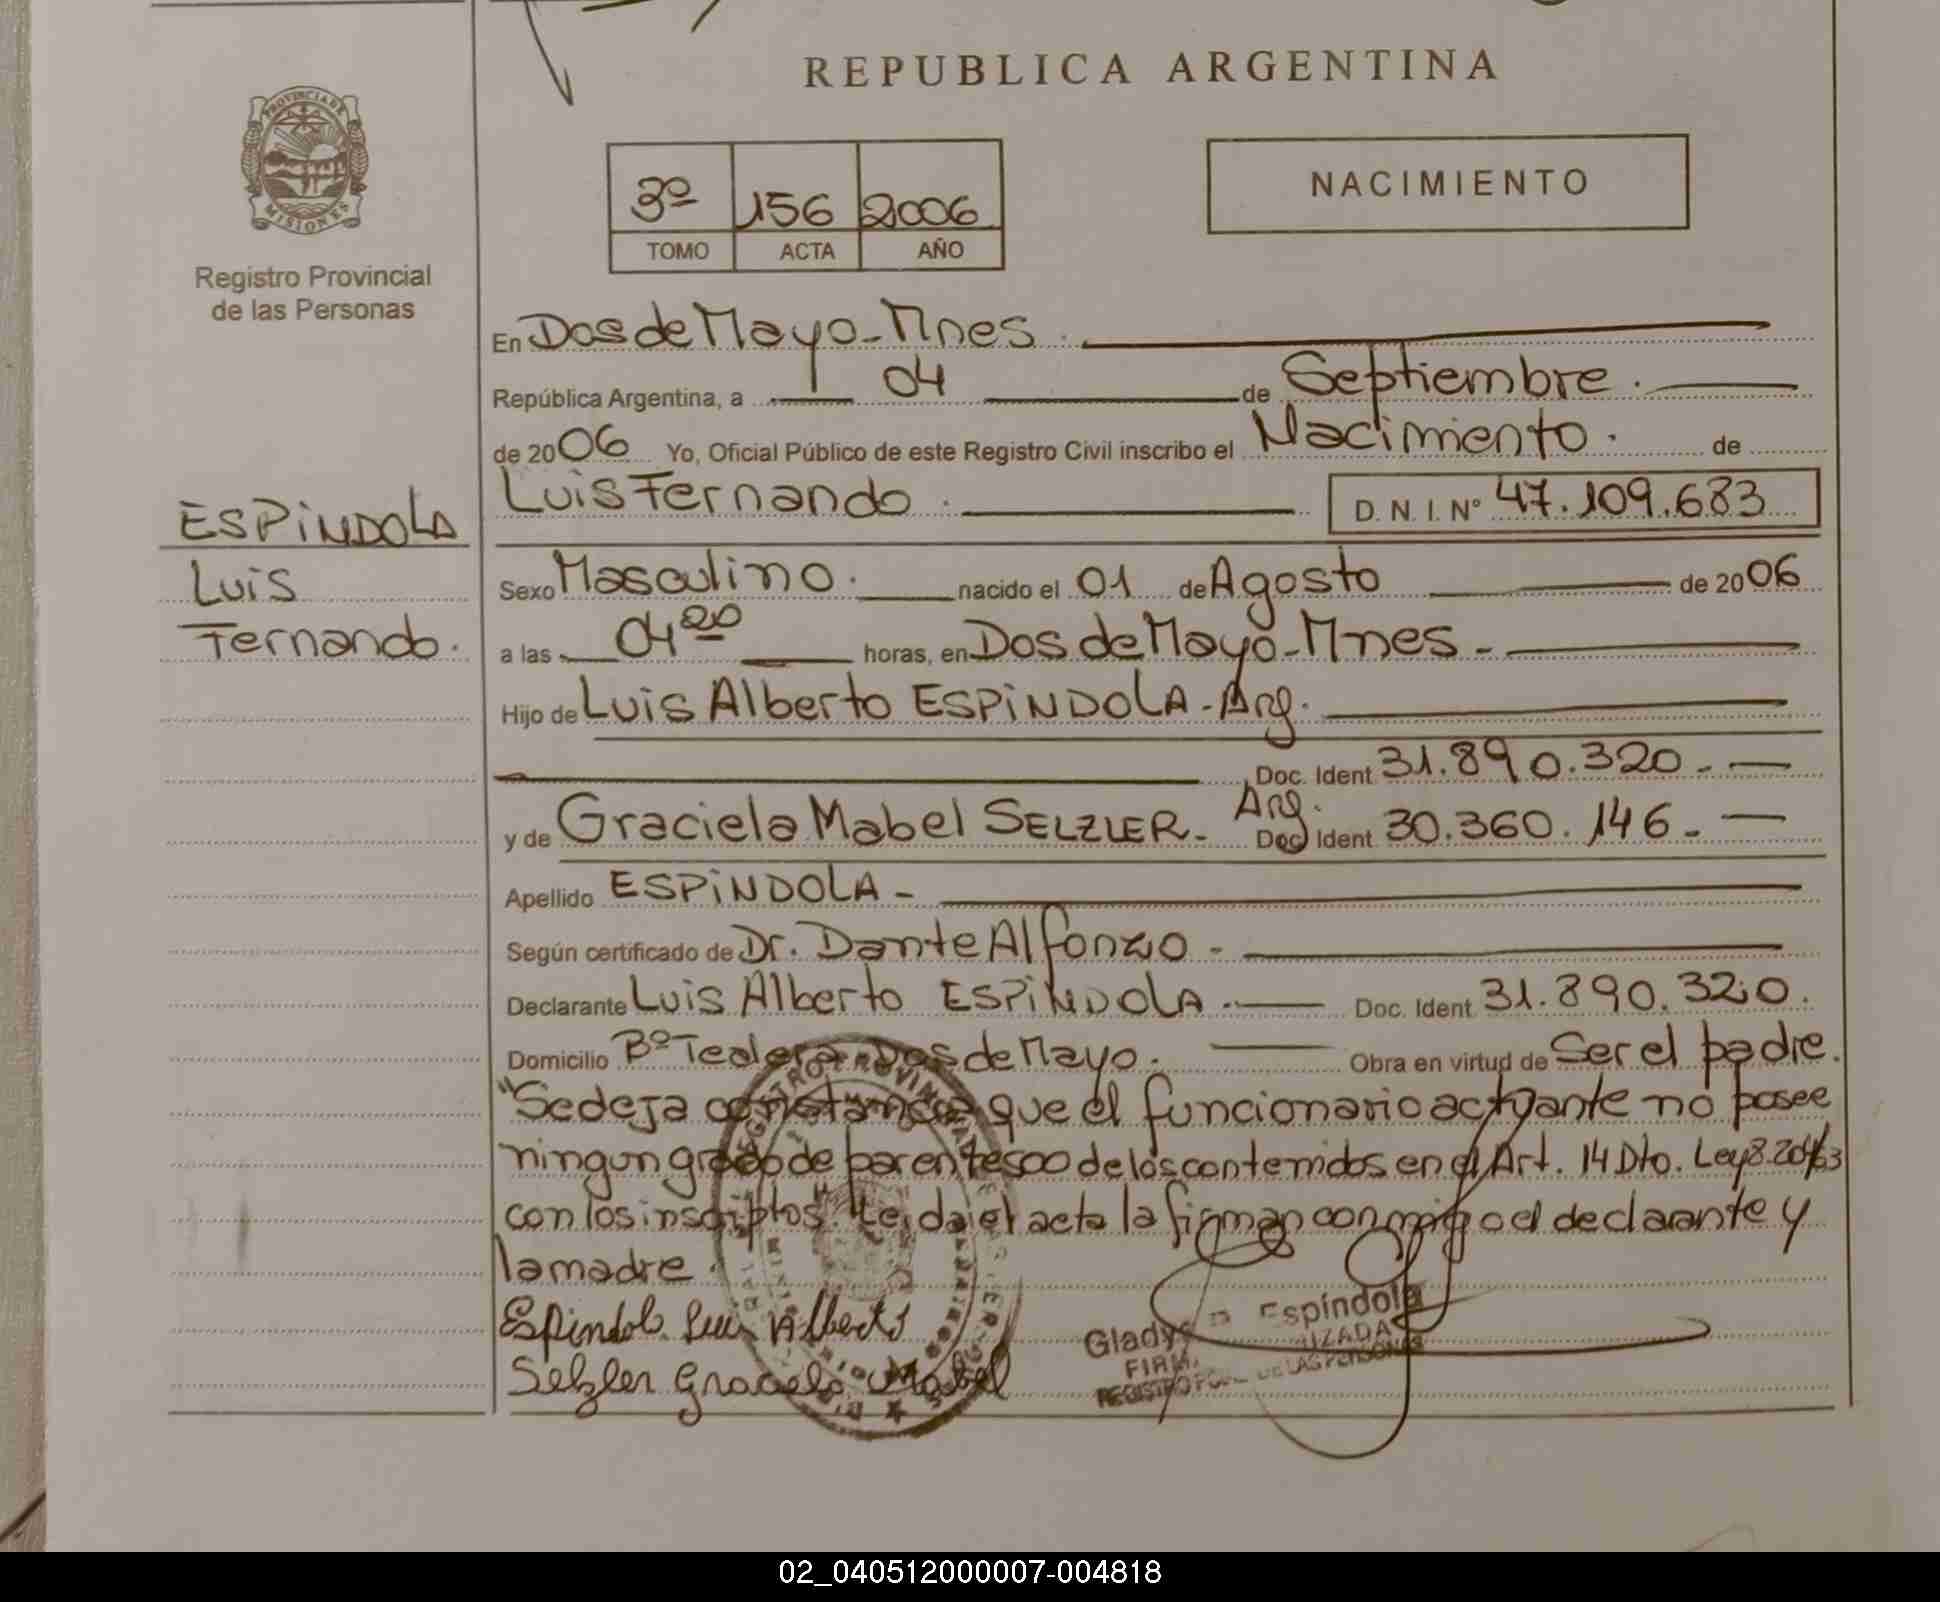 REPUBLICA ARGENTINA
PROVINCIA DE
MISIONES
Registro Provincial
de las Personas
3º 156 2006
TOMO ACTA AÑO
NACIMIENTO
En Dos de Mayo - Mnes.
República Argentina, a 04 de Septiembre.
de 2006 Yo, Oficial Público de este Registro Civil inscribo el Nacimiento. de
ESPINDOLA
Luis
Fernando.
Luis Fernando. D. N. I. Nº 47.109.683
Sexo Masculino. nacido el 01 de Agosto de 2006
a las 04 20 horas, en Dos de Mayo - Mnes -
Hijo de Luis Alberto ESPINDOLA - Arg.
Doc. Ident. 31.890.320 -
y de Graciela Mabel SELZLER - Arg. Doc. Ident. 30.360.146 -
Apellido ESPINDOLA -
Según certificado de Dr. Dante Alfonzo -
Declarante Luis Alberto ESPINDOLA - Doc. Ident. 31.890.320.
Domicilio Bº Tealera - Dos de Mayo. Obra en virtud de Ser el padre.
"Se deja constancia que el funcionario actuante no posee
ningun grado de parentesco de los contenidos en el Art. 14 Dto. Ley 8.204/63
con los inscriptos". Leida el acta la firman conmigo el declarante y
la madre.
Espindola Luis Alberto
Selzler Graciela Mabel
Gladys Espíndola
REGISTRO DE LAS PERSONAS
02_040512000007-004818